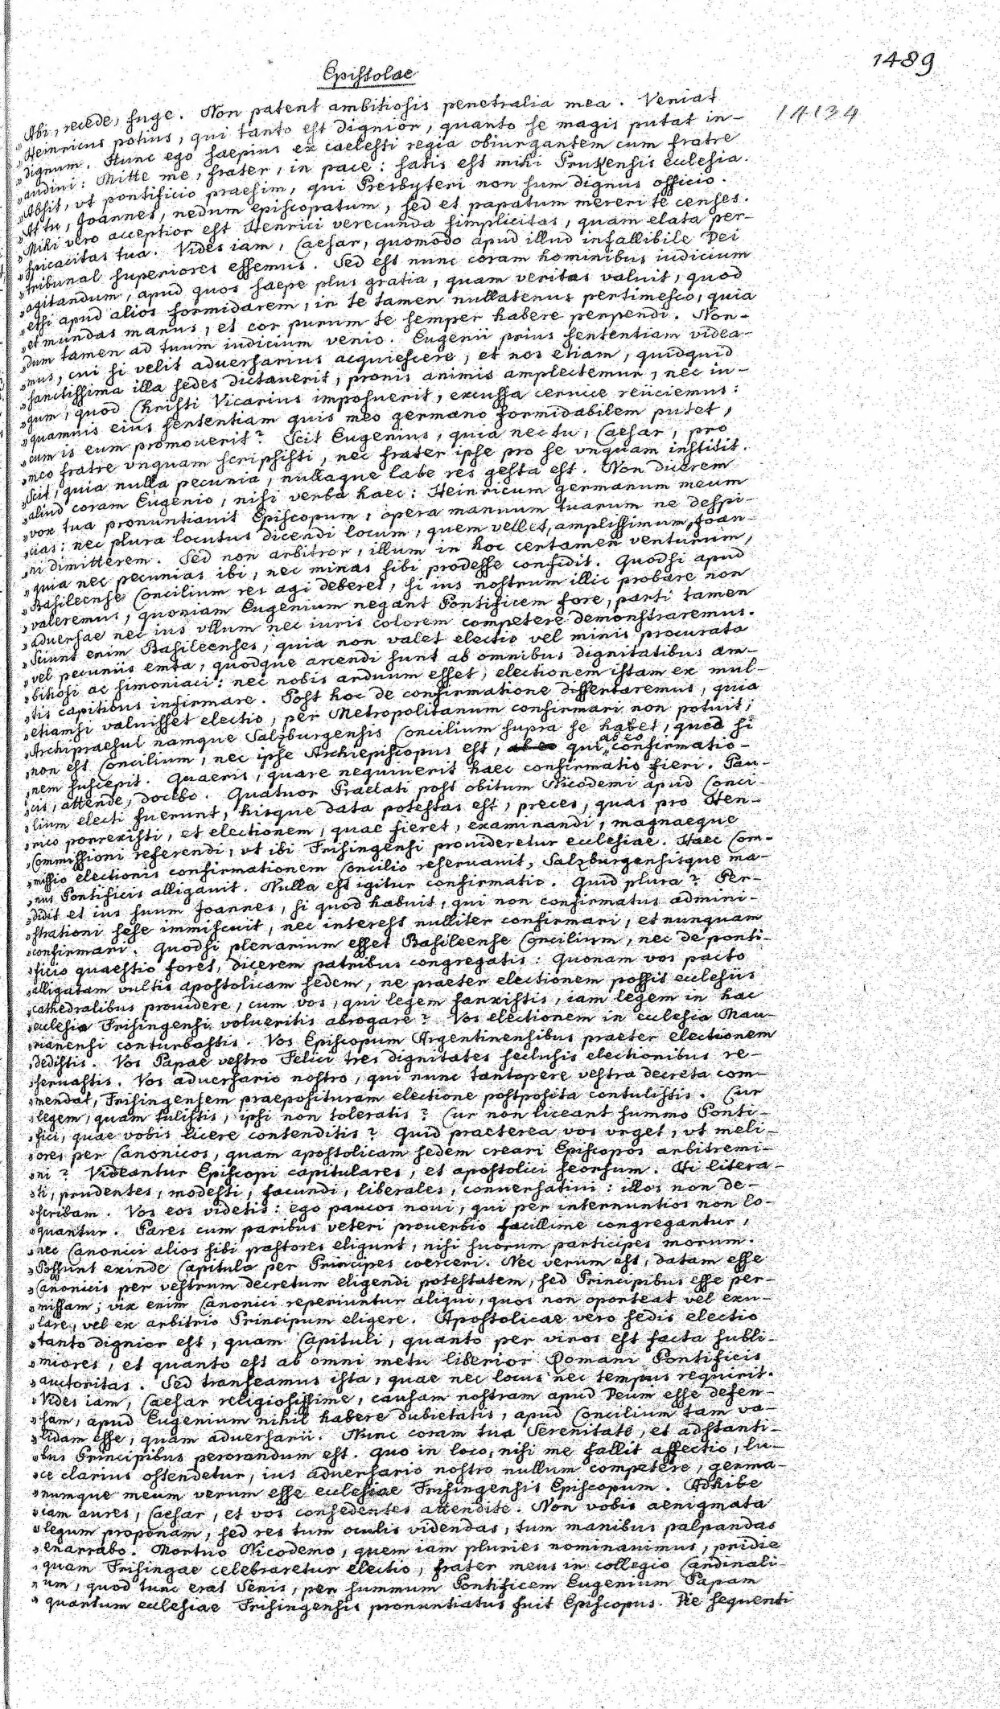 1489
Epistolae
14134
„Abi, recede, fuge. Non patent ambitiosis penetralia mea. Veniat
„Heinricus potius, qui tanto est dignior, quanto se magis putat in-
„dignum. Hunc ego saepius ex caelesti regia obiurgantem cum fratre
„audini: Mitte me, frater, in pace: satis est mihi Pruxensis ecclesia.
„Absit, vt pontificio praesim, qui Presbyteri non sum dignus officio.
„At tu, Joannes, nedum episcopatum, sed et papatum mereri te censes.
„Mihi vero acceptior est Henrici verecunda simplicitas, quam elata per-
„spicacitas tua. Vides iam, Caesar, quomodo apud illud infallibile Dei
„tribunal superiores essemus. Sed est nunc coram hominibus iudicium
„agitandum, apud quos saepe plus gratia, quam veritas valuit, quod
„etsi apud alios formidarem, in te tamen nullatenus pertimesco, quia
„et mundas manus, et cor purum te semper habere perpendi. Non-
„dum tamen ad tuum iudicium venio. Eugenii prius sententiam videa-
„mus, cui si velit adversarius acquiescere, et nos etiam, quidquid
„sanctissima illa sedes dictauerit, pronis animis amplectemur, nec iu-
„gum, quod Christi Vicarius imposuerit, excussa ceruice reiiciemus:
„quamuis eius sententiam quis meo germano formidabilem putet,
„cum is eum promouerit? Scit Eugenius, quia nec tu, Caesar, pro
„meo fratre vnquam scripsisti, nec frater ipse pro se vnquam institit.
„Scit, quia nulla pecunia, nullaque labe res gesta est. Non dicerem
„aliud coram Eugenio, nisi verba haec: Heinricum germanum meum
„vox tua pronuntiauit Episcopum, opera manuum tuarum ne despi-
„cias: nec plura locutus dicendi locum, quem vellet, amplissimum, Joan-
„ni dimitterem. Sed non arbitror, illum in hoc certamen venturum,
„quia nec pecunias ibi, nec minas sibi prodesse confidit. Quodsi apud
„Basileense Concilium res agi deberet, si ius nostrum illic probare non
„valeremus, quoniam Eugenium negant Pontificem fore, parti tamen
„aduersae nec ius vllum nec iuris colorem competere demonstraremus.
„Sciunt enim Basileenses, quia non valet electio vel minis procurata
„vel pecuniis emta, quodque arcendi sunt ab omnibus dignitatibus am-
„bitiosi ac simoniaci: nec nobis arduum esset, electionem istam ex mul-
„tis capitibus infirmare. Post hoc de confirmatione dissertaremus, quia
„etiamsi valuisset electio, per Metropolitanum confirmari non potuit;
„Archipraesul namque Salzburgensis Concilium supra se habet, quod si
„non est Concilium, nec ipse Archiepiscopus est, qui ab eo confirmatio-
„nem suscepit. Quaeris, quare nequiuerit haec confirmatio fieri. Pau-
„cis, attende, docebo. Quatuor Praelati post obitum Nicodemi apud Conci-
„lium electi fuerunt, hisque data potestas est, preces, quas pro Hen-
„rico porrexisti, et electionem, quae fieret, examinandi, magnaeque
„Commissioni referendi, vt ibi Frisingensi prouideretur ecclesiae. Haec Com-
„missio electionis confirmationem Concilio reseruauit, Salzburgensisque ma-
„nus Pontificis alligauit. Nulla est igitur confirmatio. Quid plura? Per-
„didit et ius suum Joannes, si quod habuit, qui non confirmatus admini-
„strationi sese immiscuit, nec interest nulliter confirmari, et nunquam
„confirmari. Quodsi plenarium esset Basileense Concilium, nec de ponti-
„ficio quaestio foret, dicerem patribus congregatis: Quonam vos pacto
„alligatam vultis apostolicam sedem, ne praeter electionem possit ecclesiis
„cathedralibus prouidere, cum vos, qui legem sanxistis, iam legem in hac
„ecclesia Frisingensi volueritis abrogare? Vos electionem in ecclesia Mau-
„rianensi conturbastis. Vos Episcopum Argentinensibus praeter electionem
„dedistis. Vos Papae vestro Felici tres dignitates seclusis electionibus re-
„seruastis. Vos aduersario nostro, qui nunc tantopere vestra decreta com-
„mendat, Frisingensem praeposituram electione postposita contulistis. Cur
„legem, quam tulistis, ipsi non toleratis? Cur non liceant summo Ponti-
„fici, quae vobis licere contenditis? Quid praeterea vos vrget, vt meli-
„ores per Canonicos, quam apostolicam sedem creari Episcopos arbitremi-
„ni? Videantur Episcopi capitulares, et apostolici seorsum. Hi litera-
„ti, prudentes, modesti, facundi, liberales, conuersatiui: illos non de-
„scribam. Vos eos videtis: ego paucos noui, qui per internuntios non lo-
„quantur. Pares cum paribus veteri prouerbio facillime congregantur,
„nec Canonici alios sibi pastores eligunt, nisi suorum participes morum.
„Possunt exinde Capitula per Principes coerceri. Nec verum est, datam esse
„Canonicis per vestrum decretum eligendi potestatem, sed Principibus esse per-
„missam; vix enim Canonici reperiuntur aliqui, quos non oporteat vel exu-
„lare, vel ex arbitrio Principum eligere. Apostolicae vero sedis electio
„tanto dignior est, quam Capituli, quanto per viros est facta subli-
„miores, et quanto est ab omni metu liberior Romani Pontificis
„auctoritas. Sed transeamus ista, quae nec locus nec tempus requirit.
„Vides iam, Caesar religiosissime, causam nostram apud Deum esse defen-
„sam, apud Eugenium nihil habere dubietatis, apud Concilium tam va-
„lidam esse, quam aduersarii. Nunc coram tua Serenitate, et adstanti-
„bus Principibus perorandum est. Quo in loco, nisi me fallit affectio, lu-
„ce clarius ostendetur, ius aduersario nostro nullum competere, germa-
„numque meum verum esse ecclesiae Frisingensis Episcopum. Adhibe
„iam aures, Caesar, et vos consedentes attendite. Non vobis aenigmata
„legum proponam, sed res tum oculis videndas, tum manibus palpandas
„enarrabo. Mortuo Nicodemo, quem iam pluries nominauimus, pridie
„quam Frisingae celebraretur electio, frater meus in collegio Cardinali-
„um, quod tunc erat Senis, per summum Pontificem Eugenium Papam
„quartum ecclesiae Frisingensis pronuntiatus fuit Episcopus. Die sequenti